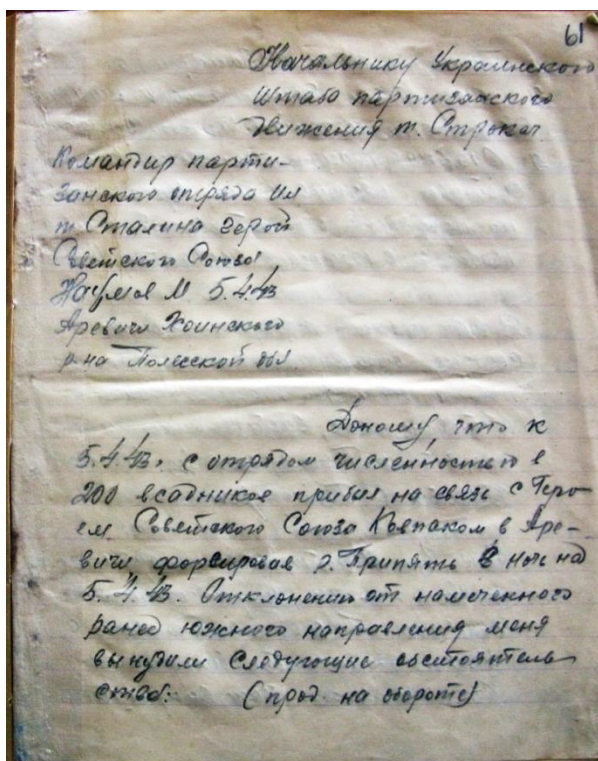 61
Начальнику Украинского
штаба партизанского
движения т. Строкач
Командир парти-
занского отряда им
т Сталина герой
Советского Союза
Наумов М 5.4.43
Аревичи Хоинского
р-на Полесской обл
Доношу, что к
5.4.43. с отрядом численностью в
200 всадников прибыл на связь с Геро-
ем Советского Союза Ковпаком в Аре-
вичи форсировав р. Припять в ночь на
5.4.43. Отклонению от намеченного
ранее южного направления меня
вынудили следующие обстоятель-
ства: (прод на обороте)